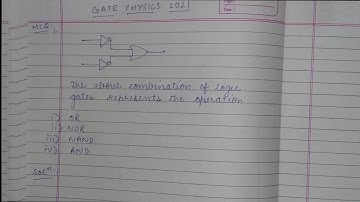 GATE PHYSICS 2021
MCQ
The above combination of logic
gates represents the operation
i) OR
ii) NOR
iii) NAND
iv) AND
Solⁿ: